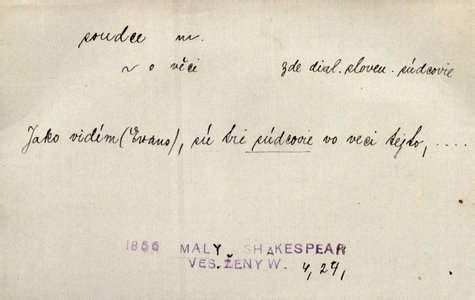 soudce m.
~ o věci zde dial. sloven. súdcovie
Jako vidím (Evans), sú tri súdcovie vo veci tejto, ....
1856 MALY SHAKESPEAR
VES. ŽENY W. 4, 24,